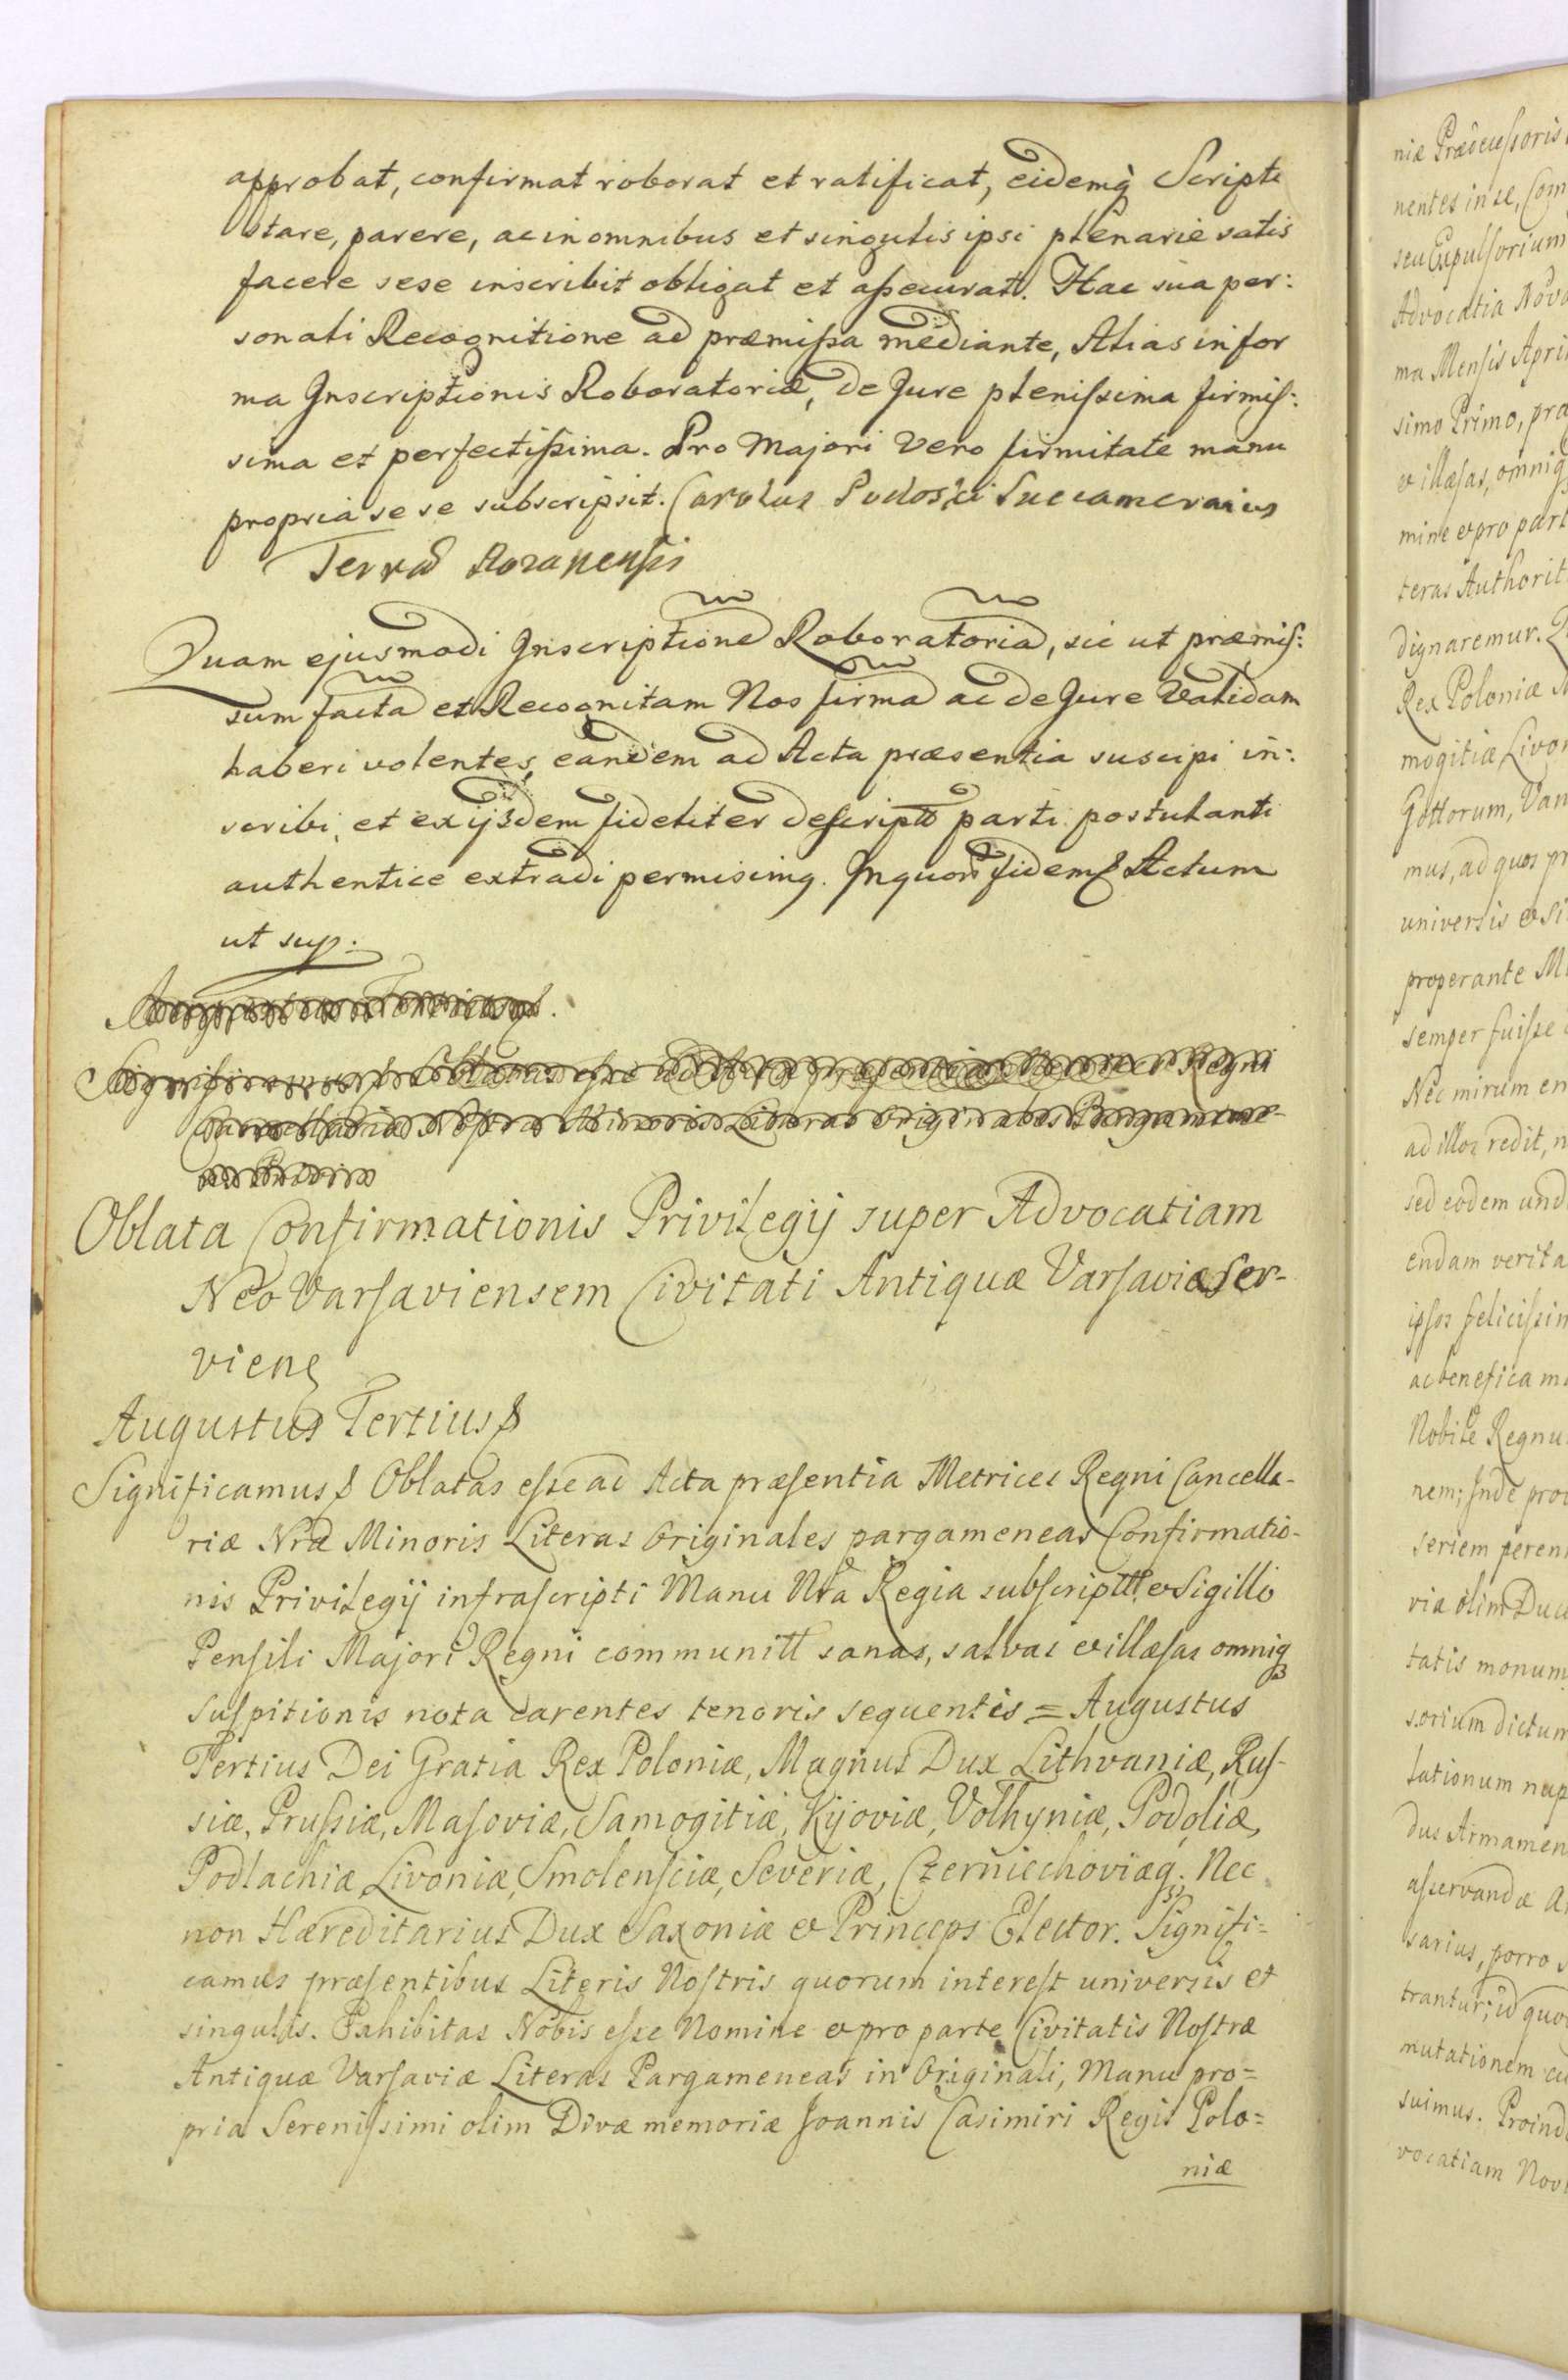 approbat, confirmat roborat et ratificat, eidemq̀ Scripto
stare, parere, ac in omnibus et singulis ipsi plenarie satis
facere sese inscribit obligat et aßecurat. Hac sua per:
sonali Recognitione ad præmißa mediante, Alias in for
ma Inscriptionis Roboratoriæ, de Jure plenißima firmiß:
sima et perfectißima. Pro Majori Vero firmitate manu
propria se se subscripsit. Carolus Podoski Succamerarius
Terræ Rozanensis
Quam ejusmodi Inscriptione Roboratoria, sic ut præmiß:
sum facta et Recognitam Nos firma ac de Jure Validam
haberi volentes, eandem ad Acta præsentia suscipi in:
scribi, et ex ijsdem fideliter descript parti postulanti
authentice extradi permisimq. In quor fidem Actum
ut sup.
Augustus Tertius
Significamus Oblatas esse ad Acta præsentia Metrices Regni
Cancellariæ Nostræ Minoris Literas Originales Pargamene-
Oblata Confirmationis Privilegij super Advocatiam
Neo Varsaviensem Civitati Antiquæ Varsaviæ ser-
viens
Augustus Tertius
Significamus Oblatas eße ad Acta præsentia Metrices Regni Cancella-
riæ Nræ Minoris Literas Originales pargameneas Confirmatio-
nis Privilegij infrascripti Manu Nra Regia subscriptt. et Sigillo
Pensili Majori Regni communitt sanas, salvas et illæsas omniq3
suspitionis nota carentes tenoris sequentis = Augustus
Tertius Dei Gratia Rex Poloniæ, Magnus Dux Lithvaniæ, Rus-
siæ, Prußiæ, Masoviæ, Samogitiæ, Kijoviæ, Volhyniæ, Podoliæ,
Podlachiæ, Livoniæ, Smolensciæ, Severiæ, Czerniechoviæq3. Nec
non Hæreditarius Dux Saxoniæ et Princeps Elector. Signifi=
camus præsentibus Literis Nostris quorum interest universis et
singulis. Exhibitas Nobis eße Nomine et pro parte Civitatis Nostræ
Antiquæ Varsaviæ Literas Pargameneas in Originali, Manu pro=
pria Serenißimi olim Divæ memoriæ Joannis Casimiri Regis Polo=
niæ
niæ Prædecessoris
nentes in se, Com
seu Expulsorium
Advocatia Novo
ma Mensis Apri
simo Primo, pra
et illæsas, omniq
mine et pro part
teras Authorit
dignaremur.
Rex Poloniæ
mogitiæ Livon
Gottorum, Van
mus, ad quos pr
universis et si
properante M
semper fuiße
Nec mirum en
ad illos redit, n
sed eodem und
endam verita
ipsos felicißim
ac benefica m
Nobile Regnu
nem; Inde pro
seriem peren
via olim Duc
tatis monum
sorium dictum
lationum nup
dus Armamen
aßervandæ a
sarius, porro s
trantur; id quo
mutationem cu
suimus. Proind
vocatiam Nov